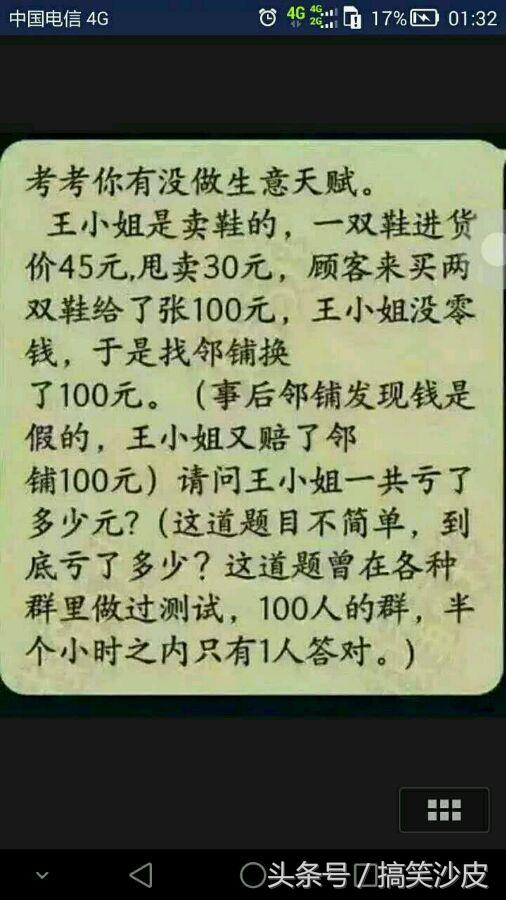 中国电信 4G
4G
4G
2G
17%
01:32
考考你有没做生意天赋。
王小姐是卖鞋的，一双鞋进货
价45元,甩卖30元，顾客来买两
双鞋给了张100元，王小姐没零
钱，于是找邻铺换
了100元。（事后邻铺发现钱是
假的，王小姐又赔了邻
铺100元）请问王小姐一共亏了
多少元?（这道题目不简单，到
底亏了多少？这道题曾在各种
群里做过测试，100人的群，半
个小时之内只有1人答对。）
头条号 / 搞笑沙皮